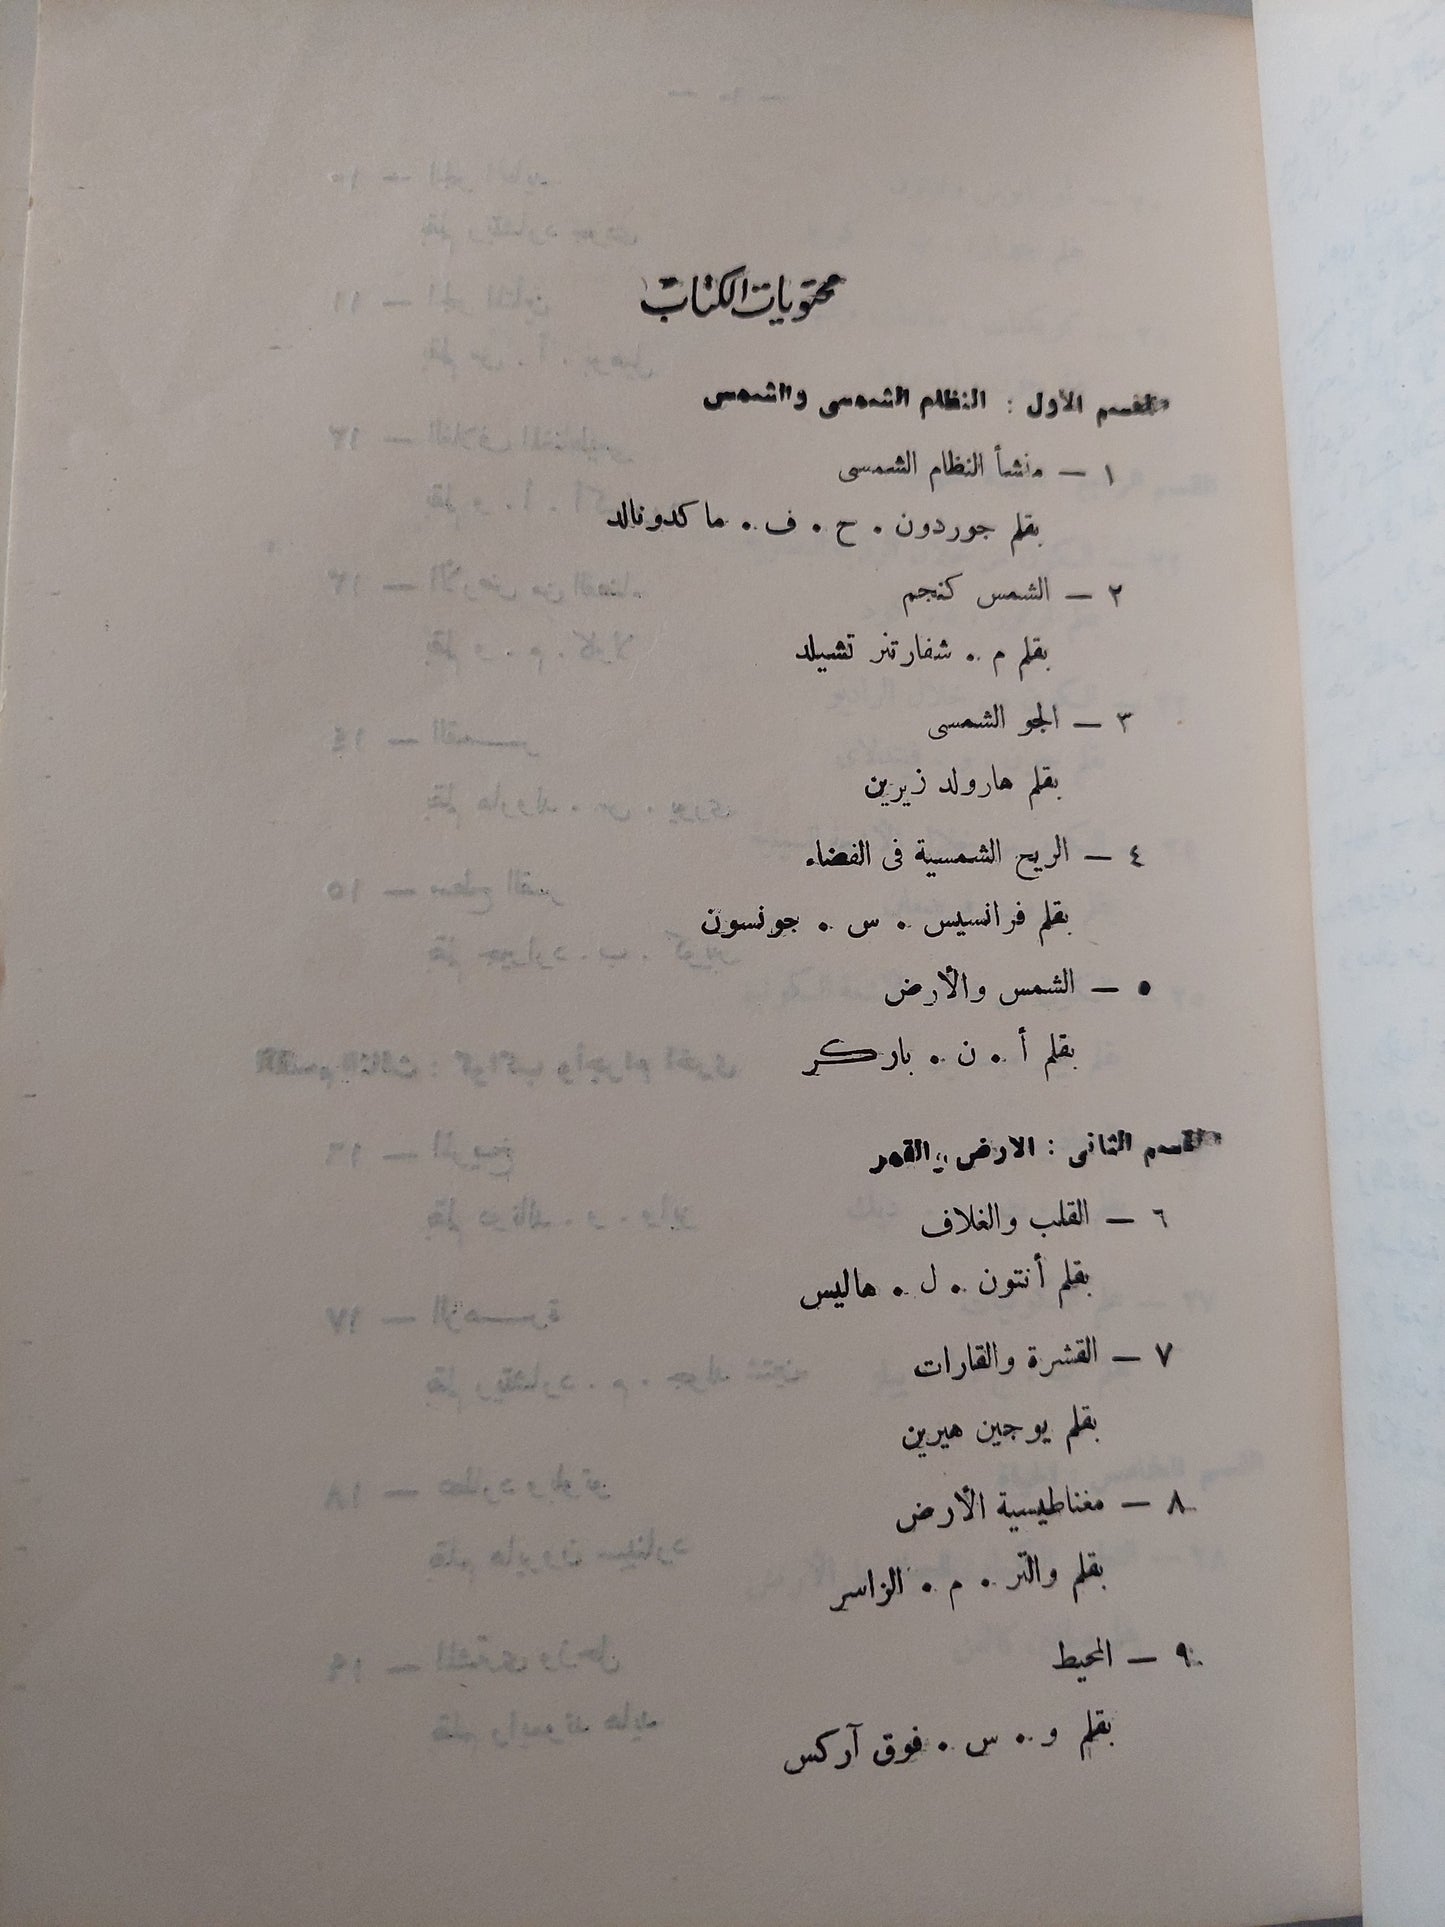 محتويات الكتاب
القسم الأول : النظام الشمسى والشمس
١ — منشأ النظام الشمسى
بقلم جوردون . ح . ف . ماكدونالد
٢ — الشمس كنجم
بقلم م . شفارتنر تشيلد
٣ — الجو الشمسى
بقلم هارولد زيرين
٤ — الريح الشمسية فى الفضاء
بقلم فرانسيس . س . جونسون
٥ — الشمس والأرض
بقلم أ . ن . باركر
القسم الثانى : الارض والقمر
٦ — القلب والغلاف
بقلم أنتون . ل . هاليس
٧ — القشرة والقارات
بقلم يوجين هيرين
٨ — مغناطيسية الأرض
بقلم والتر . م . الزاسر
٩ — المحيط
بقلم و . س . فوق آركس